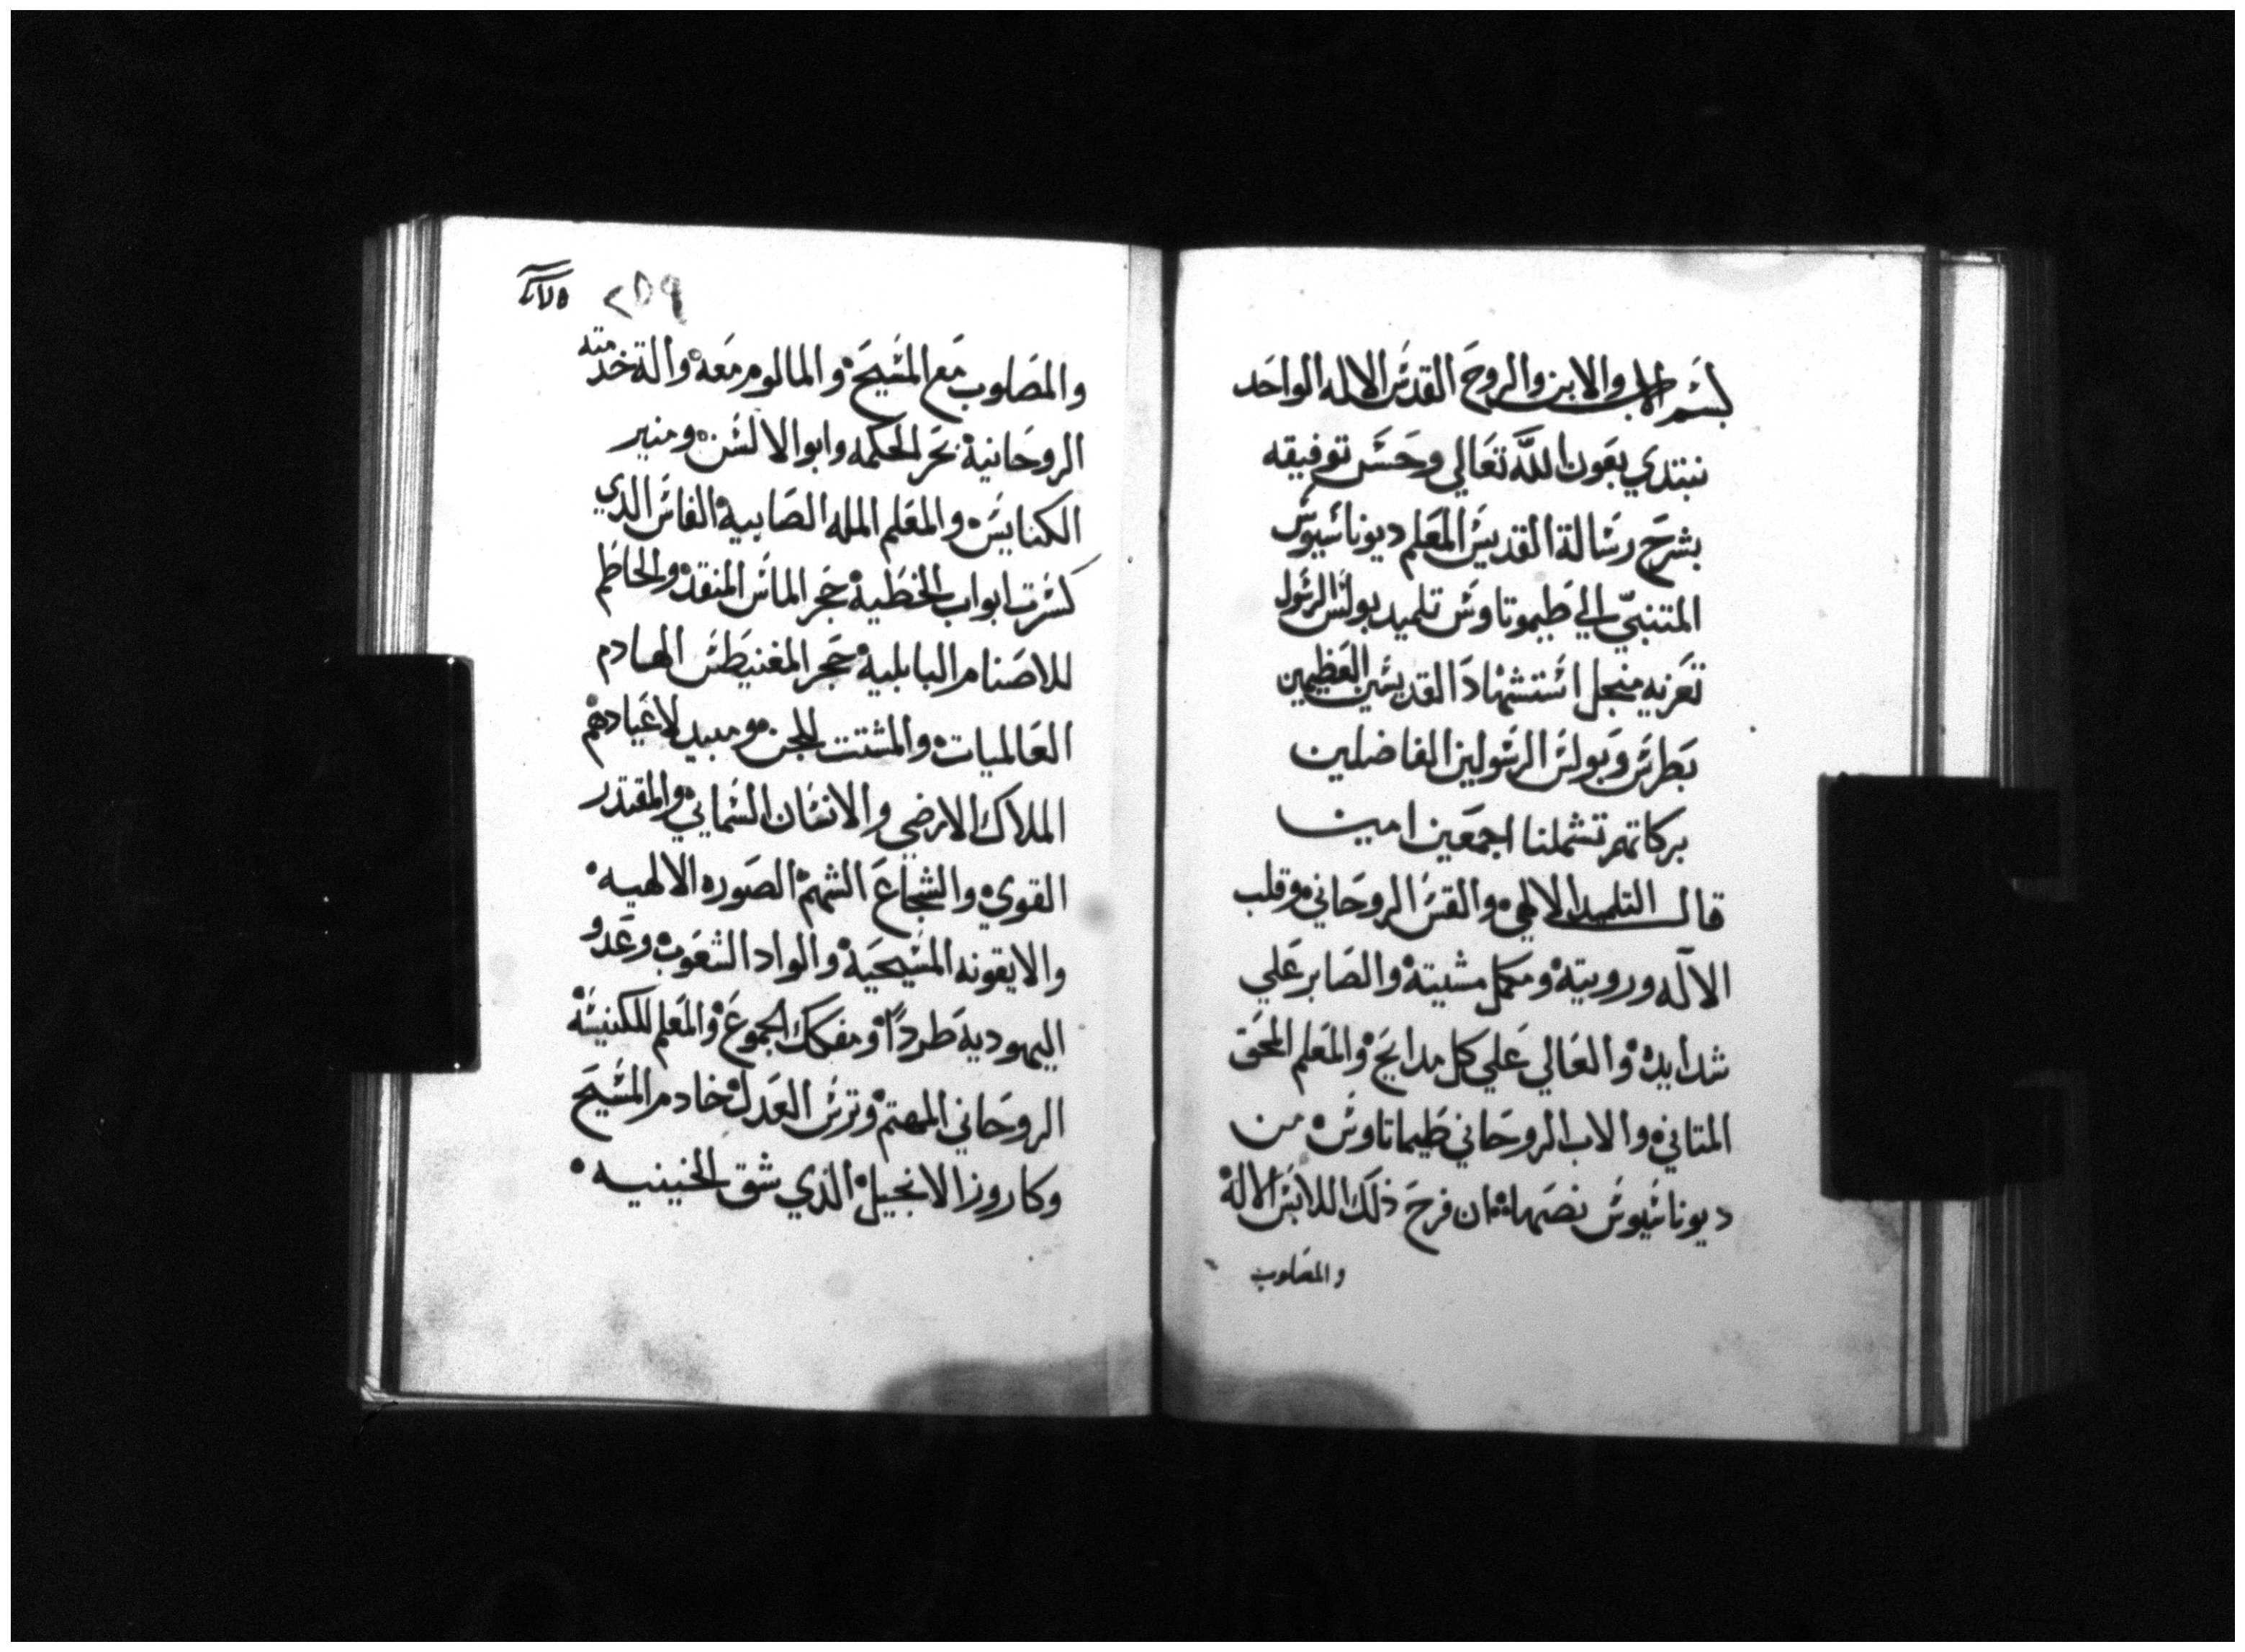 بسم الاب والابن والروح القدس الاله الواحد
نبتدي بعون الله تعالي وحسن توفيقه
بشرح رسالة القديس المعلم ديوناسيوس
المتنبي الي طيموتاوس تلميد بولس الرسول
تعزيه منجل استشهاد القديسين العظيمين
بطرس وبولس الرسولين الفاضلين
بركاتهم تشملنا اجمعين امين
قال التلميد الالهي والقس الروحاني وقلب
الاله ورويته ومكمل مشيته والصابر علي
شدايده والعالي علي كل مدايح والمعلم المحق
المتاني والاب الروحاني طيماتاوس من
ديوناسيوس نصها ان فرح ذلك اللابس الاله
والمصلوب
٢٥٩
والمصلوب مع المسيح والمالوم معه والة خدمته
الروحانية بحر الحكمه وابو الالسن ومنير
الكنايس والمعلم المله الصابية الفاس الذي
كسرت ابواب الخطية حجر الماس المنقد والحاطم
للاصنام البابلية حجر المغنيطس الهادم
العالميات والمشتت للجن ومبيد لاعيادهم
الملاك الارضي والانسان السمايي والمقتدر
القوي والشجاع الشهم الصوره الالهيه
والايقونه المسيحية والواد الشعوب وعدو
اليهودية طرداً ومفكك الجموع والمعلم للكنيسه
الروحاني المهتم وترس العدل خادم المسيح
وكاروز الانجيل الذي شق الخينيه